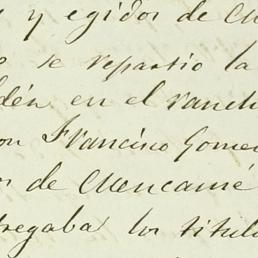 y egidos de Cu
se repartio la
den en el ranch
on Francisco Gome
de Cuencamé
tregaba los titul